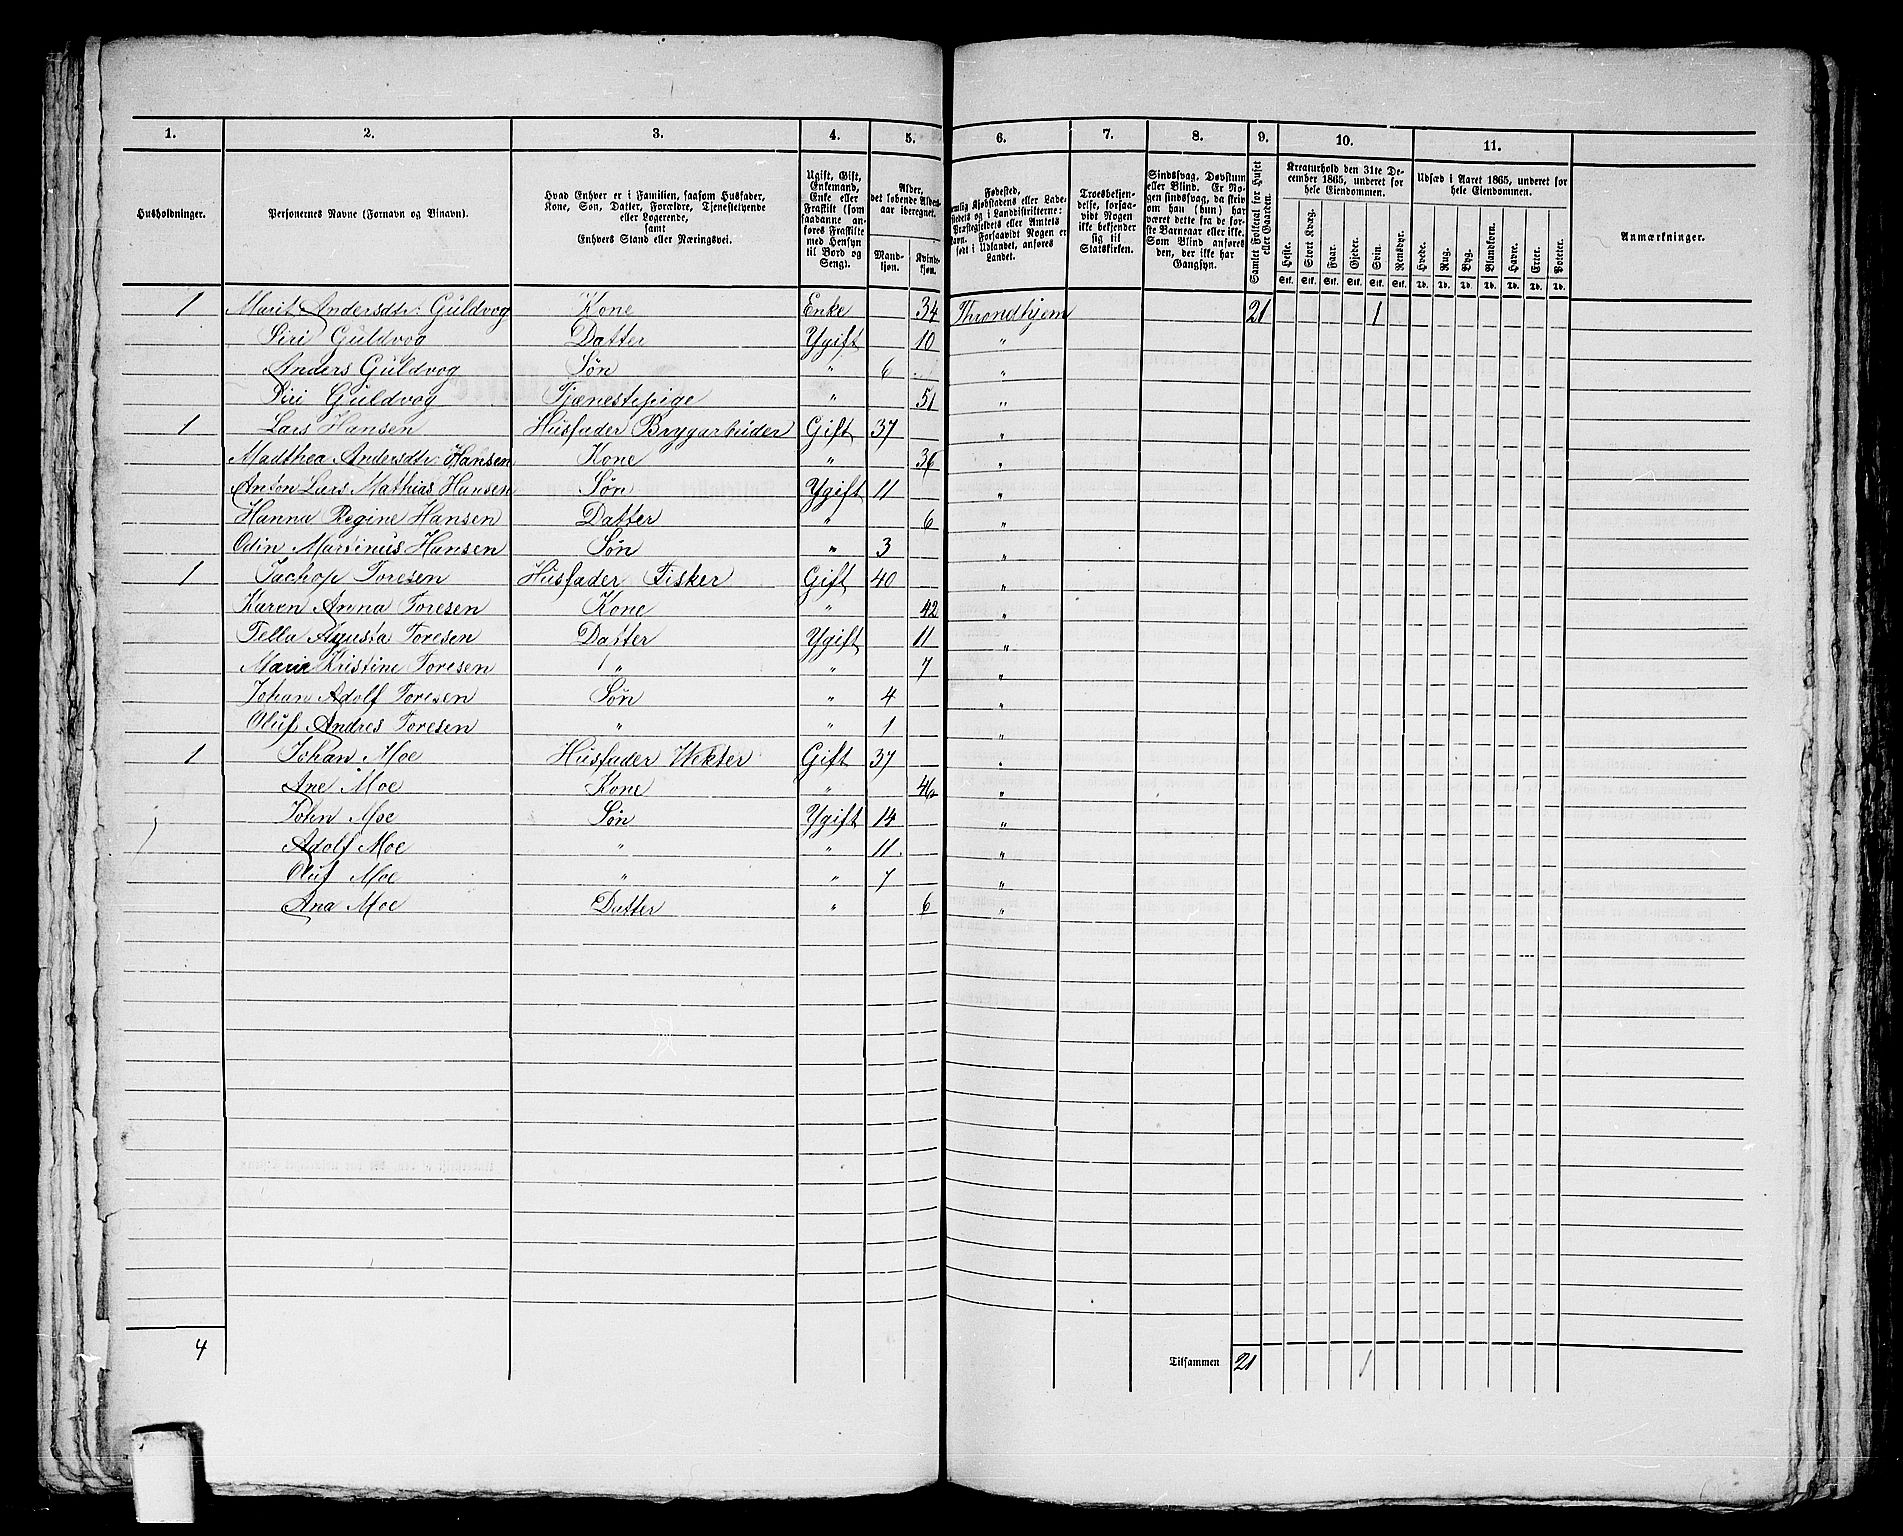 1. 2. 3. 4. 5. 6. 7. 8. 9. 10. 11.
Husholdninger.
Personernes Navne (Fornavn og Binavn).
Hvad Enhver er i Familien, saasom Husfader,
Kone, Søn, Datter, Forældre, Tjenestetyende
eller Logerende,
samt
Enhvers Stand eller Næringsvei.
Ugift, Gift,
Enkemand,
Enke eller
Fraskilt (som
saadanne an-
føres Fraskilte
med Hensyn
til Bord og
Seng).
Alder,
det løbende Alders-
aar iberegnet.
Mand-
kjøn.
Kvinde-
kjøn.
Fødested,
nemlig Kjøbstadens eller Lade-
stedets og i Landdistrikterne:
Præstegjeldets eller Amtets
Navn. Forsaavidt Nogen er
født i Udlandet, anføres
Landet.
Troesbekjen-
delse, forsaa-
vidt Nogen
ikke bekjender
sig til
Statskirken.
Sindssvag, Døvstum
eller Blind. Er No-
gen sindssvag, da skriv
om han (hun) har
været dette fra de før-
ste Barneaar eller ikke.
Som Blind anføres
den, der ikke har
Gangsyn.
Samlet Folketal for Huset
eller Gaarden.
Kreaturhold den 31te De-
cember 1865, underet for
hele Eiendommen.
Heste. Stort Kvæg. Faar. Gjeder. Svin. Rensdyr.
Stk. Stk. Stk. Stk. Stk. Stk.
Udsæd i Aaret 1865, underet for
hele Eiendommen.
Hvede. Rug. Byg. Blandkorn. Havre. Erter. Poteter.
Td. Td. Td. Td. Td. Td. Td.
Anmærkninger.
1 Marit Andersdtr. Guldvog Kone Enke 34 Throndhjem 21 1
Siri Guldvog Datter Ygift 10 "
Anders Guldvog Søn " 6 "
Siri Guldvog Tjænestepige " 51 "
1 Lars Hansen Husfader Brygarbeider Gift 37 "
Madthea Andersdtr. Hansen Kone " 36 "
Anton Lars Mathias Hansen Søn Ygift 11 "
Hanna Regine Hansen Datter " 6 "
Odin Martinus Hansen Søn " 3 "
1 Jachop Toresen Husfader Fisker Gift 40 "
Karen Anna Toresen Kone " 42 "
Tella Agusta Toresen Datter Ygift 11 "
Marie Kristine Toresen " " 7 "
Johan Adolf Toresen Søn " 4 "
Oluf Andres Toresen " " 1 "
1 Johan Moe Husfader Wekter Gift 37 "
Ane Moe Kone " 46 "
John Moe Søn Ygift 14 "
Adolf Moe " " 11 "
Oluf Moe " " 7 "
Ana Moe Datter " 6 "
4 Tilsammen 21 1